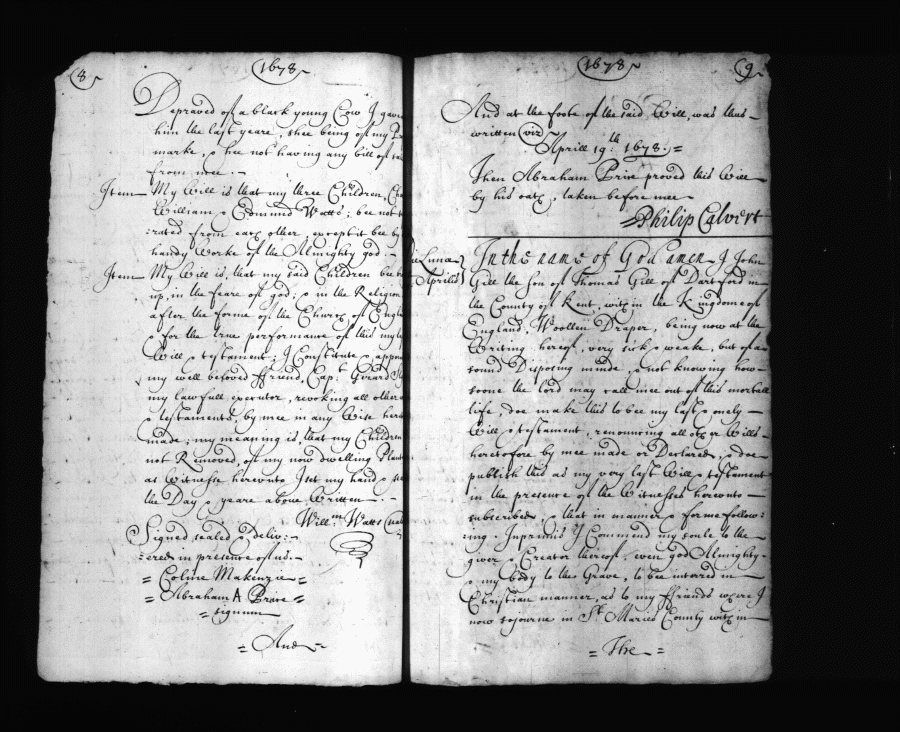 8
1678
Depraved of a black young Cow I gave
him the last yeare, shee being of my
marke, & hee not having any bill of
from mee.
Item My Will is that my three Children,
William & Edmund Watts; bee not
rated from each other, except it bee by
handy Worke of the Almighty god.
Item My Will is, that my said Children bee
up, in the feare of god; & in the Religion
after the forme of the Church of
& for the true performance of this my
Will & testament; I Constitute &
my well beloved ffriend, Capt. Gerard
my lawfull executor, revoking all other
& testaments, by mee in any Wise
made; my meaning is, that my Children
not Removed, of my now dwelling
as Witnesse hereunto I set my hand &
the Day & yeare above Written
Willm Watts
Signed sealed & Deliv:
:ered in presence of us.
= Coline Makenzie =
= Abraham A Price =
= signum
= And =
1678
9
And at the foote of the said Will, was thus
written viz
Aprill 19th: 1678. =
Then Abraham Price proved this Will
by his oath, taken before mee
Philip Calvert
In the name of God amen I John
Gill the Son of Thomas Gill of Dartford in
the County of Kent, within the Kingdome of
England, Woollen Draper, being now at the
Writing hereof, very sick & weake, but of a
sound Disposing minde, & not knowing how
soone the lord may call mee out of this mortall
life, doe make this to bee my last & onely
Will & testament, renouncing all other Wills
heretofore by mee made or Declared, & doe
publish this as my very last Will & testament
in the presence of the Witnesses hereunto
subscribed, & that in manner & forme follow:
ing. Inprimis I Commend my soule to the
giver & Creator thereof, even god Almighty
& my body to the Grave, to bee interred in
Christian manner, as to my ffriends where I
now sojourne in St. Maries County within
= The =